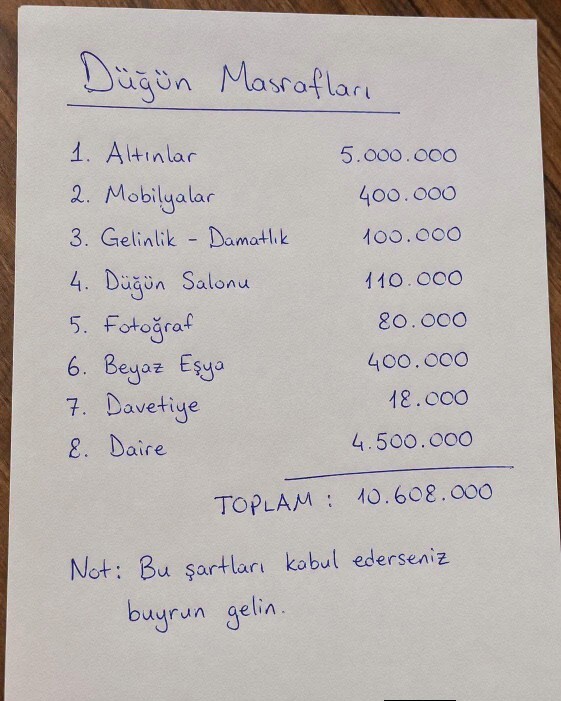 Düğün Masrafları
1. Altınlar 5.000.000
2. Mobilyalar 400.000
3. Gelinlik - Damatlık 100.000
4. Düğün Salonu 110.000
5. Fotoğraf 80.000
6. Beyaz Eşya 400.000
7. Davetiye 18.000
8. Daire 4.500.000
TOPLAM : 10.608.000
Not: Bu şartları kabul ederseniz
buyrun gelin.